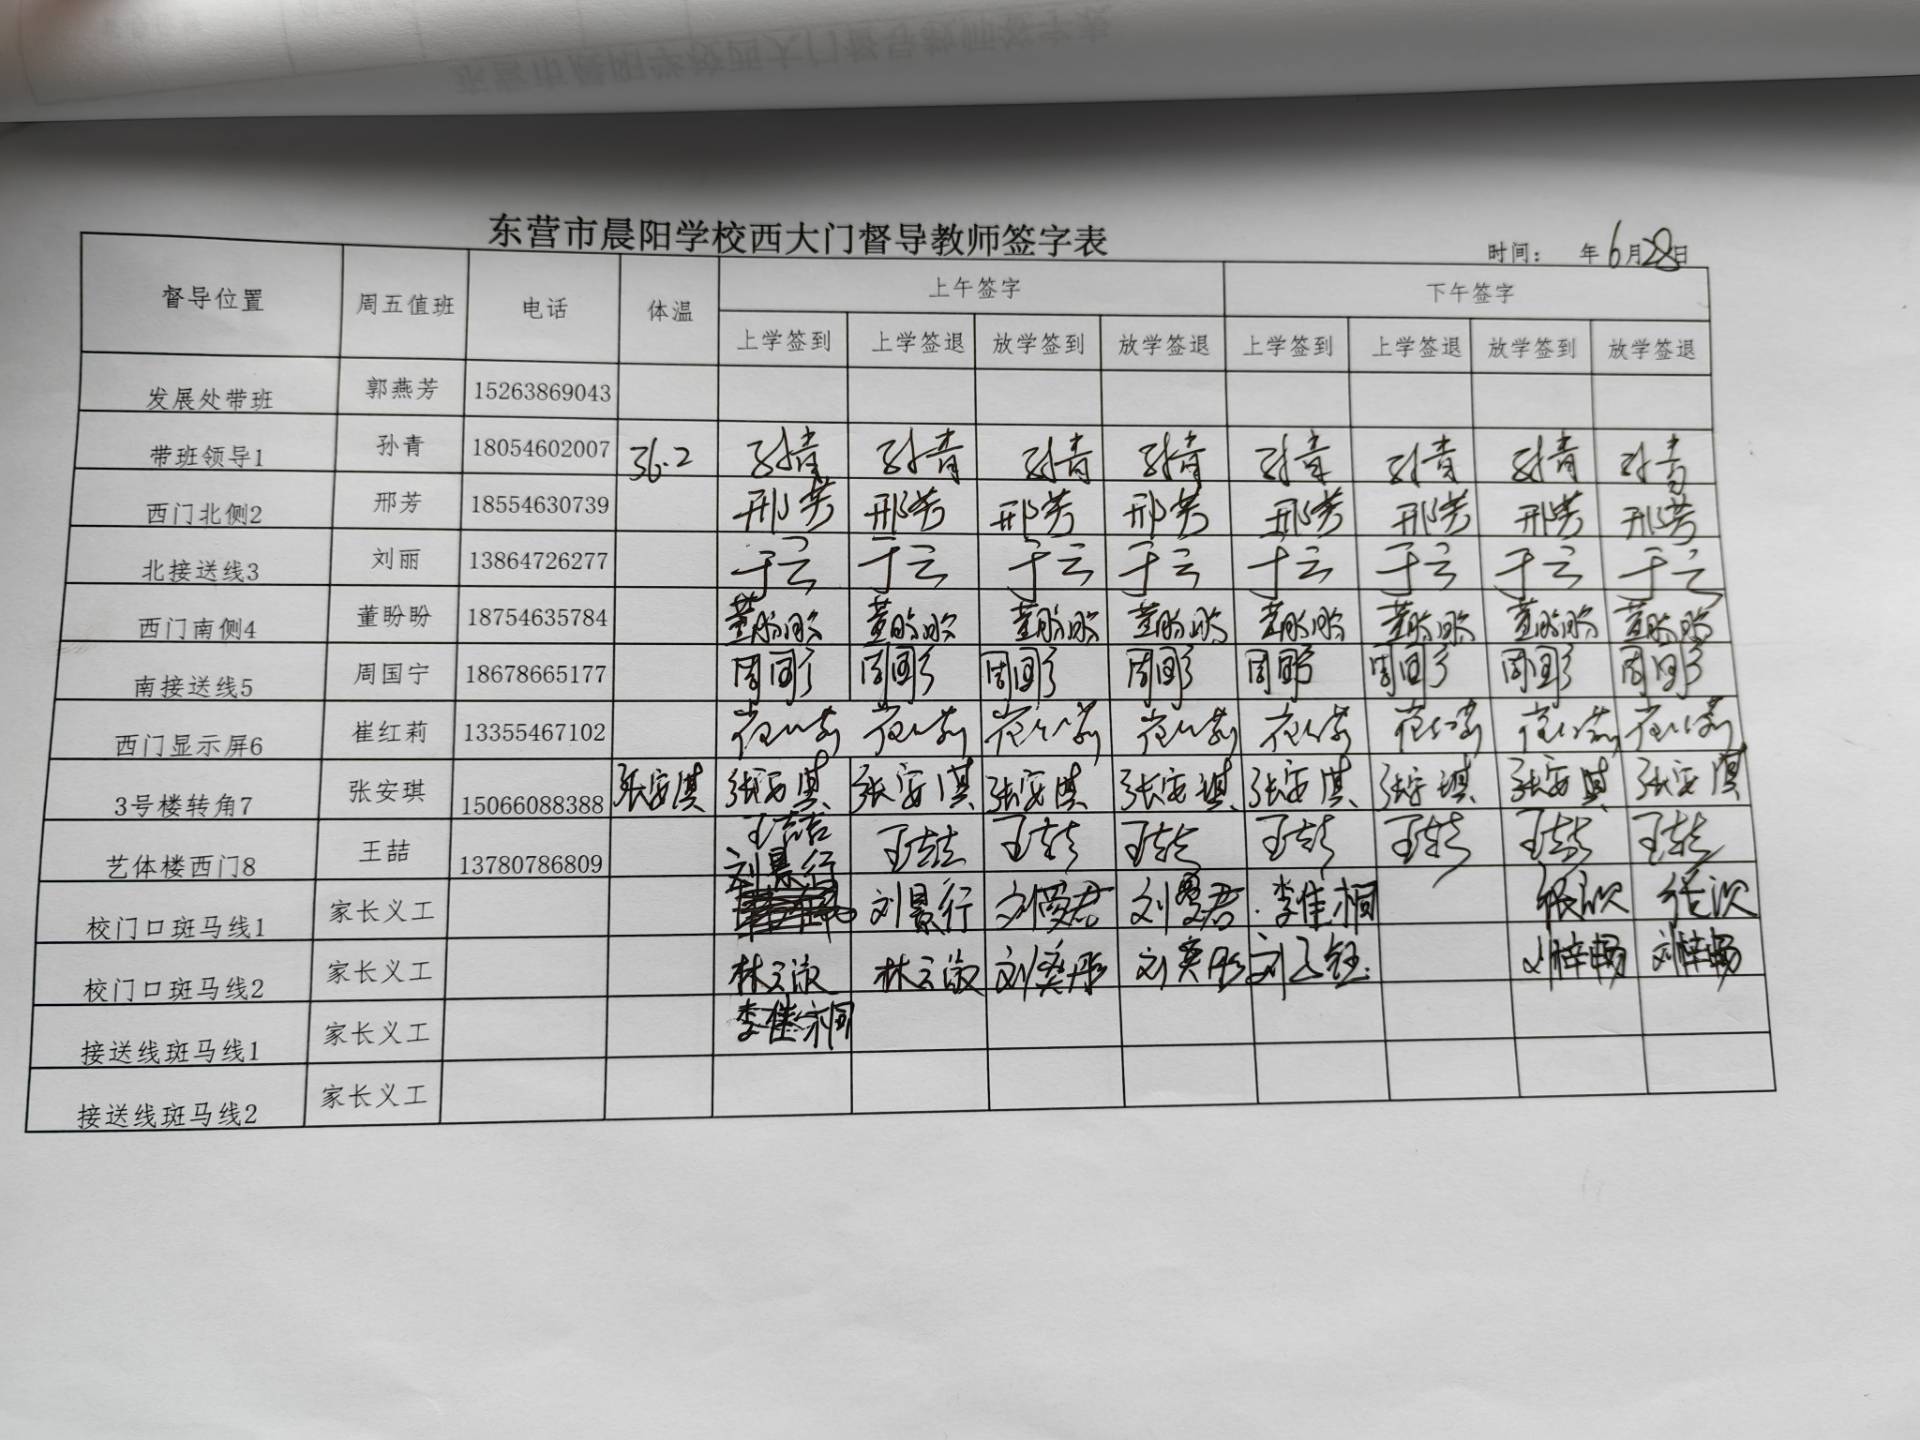 东营市晨阳学校西大门督导教师签字表
时间： 年6月28日
督导位置 周五值班 电话 体温 上午签字 下午签字
上学签到 上学签退 放学签到 放学签退 上学签到 上学签退 放学签到 放学签退
发展处带班 郭燕芳 15263869043
带班领导1 孙青 18054602007 36.2 孙青 孙青 孙青 孙青 孙青 孙青 孙青 孙青
西门北侧2 邢芳 18554630739 邢芳 邢芳 邢芳 邢芳 邢芳 邢芳 邢芳 邢芳
北接送线3 刘丽 13864726277 于云 于云 于云 于云 于云 于云 于云 于云
西门南侧4 董盼盼 18754635784 董盼盼 董盼盼 董盼盼 董盼盼 董盼盼 董盼盼 董盼盼 董盼盼
南接送线5 周国宁 18678665177 周国宁 周国宁 周国宁 周国宁 周国宁 周国宁 周国宁 周国宁
西门显示屏6 崔红莉 13355467102 崔红莉 崔红莉 崔红莉 崔红莉 崔红莉 崔红莉 崔红莉 崔红莉
3号楼转角7 张安琪 15066088388 张安琪 张安琪 张安琪 张安琪 张安琪 张安琪 张安琪 张安琪 张安琪
艺体楼西门8 王喆 13780786809 王喆 王喆 王喆 王喆 王喆 王喆 王喆 王喆
校门口斑马线1 家长义工 刘景行 刘景行 李佳桐
校门口斑马线2 家长义工 林云淑 林云淑 刘奕彤 刘奕彤 刘子钰 刘梓畅 刘梓畅
接送线斑马线1 家长义工 李佳桐
接送线斑马线2 家长义工